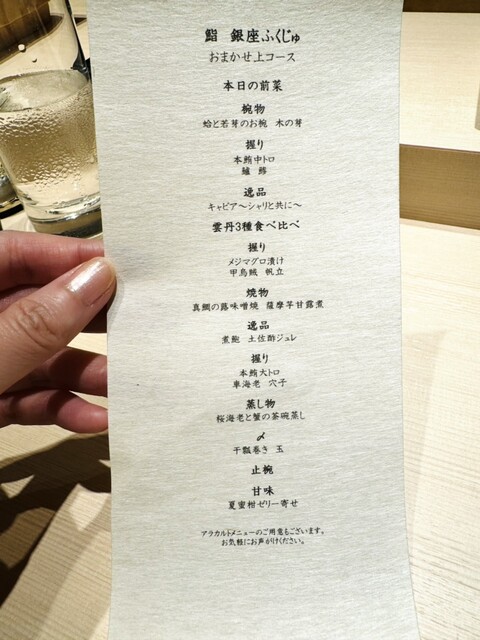 鮨 銀座ふくじゅ
おまかせ上コース
本日の前菜
椀物
蛤と若芽のお椀 木の芽
握り
本鮪中トロ
鱸 鯵
逸品
キャビア〜シャリと共に〜
雲丹3種食べ比べ
握り
メジマグロ漬け
甲烏賊 帆立
焼物
真鯛の蕗味噌焼 薩摩芋甘露煮
逸品
煮鮑 土佐酢ジュレ
握り
本鮪大トロ
車海老 穴子
蒸し物
桜海老と蟹の茶碗蒸し
〆
干瓢巻き 玉
止椀
甘味
夏蜜柑ゼリー寄せ
アラカルトメニューのご用意もございます。
お気軽にお声がけください。